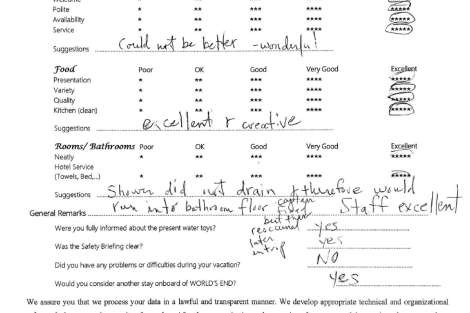 Polite * ** *** **** *****
Availability * ** *** **** *****
Service * ** *** **** *****
Suggestions Could not be better - wonderful!
Food Poor OK Good Very Good Excellent
Presentation * ** *** **** *****
Variety * ** *** **** *****
Quality * ** *** **** *****
Kitchen (clean) * ** *** **** *****
Suggestions excellent & creative
Rooms/ Bathrooms Poor OK Good Very Good Excellent
Neatly * ** *** **** *****
Hotel Service
(Towels, Bed,...) * ** *** **** *****
Suggestions Shower did not drain & therefore would
run into bathroom floor captain fixed Staff excellent
General Remarks but then
Were you fully informed about the present water toys? yes
later
Was the Safety Briefing clear? yes
in trip
Did you have any problems or difficulties during your vacation? NO
Would you consider another stay onboard of WORLD'S END? yes
We assure you that we process your data in a lawful and transparent manner. We develop appropriate technical and organizational